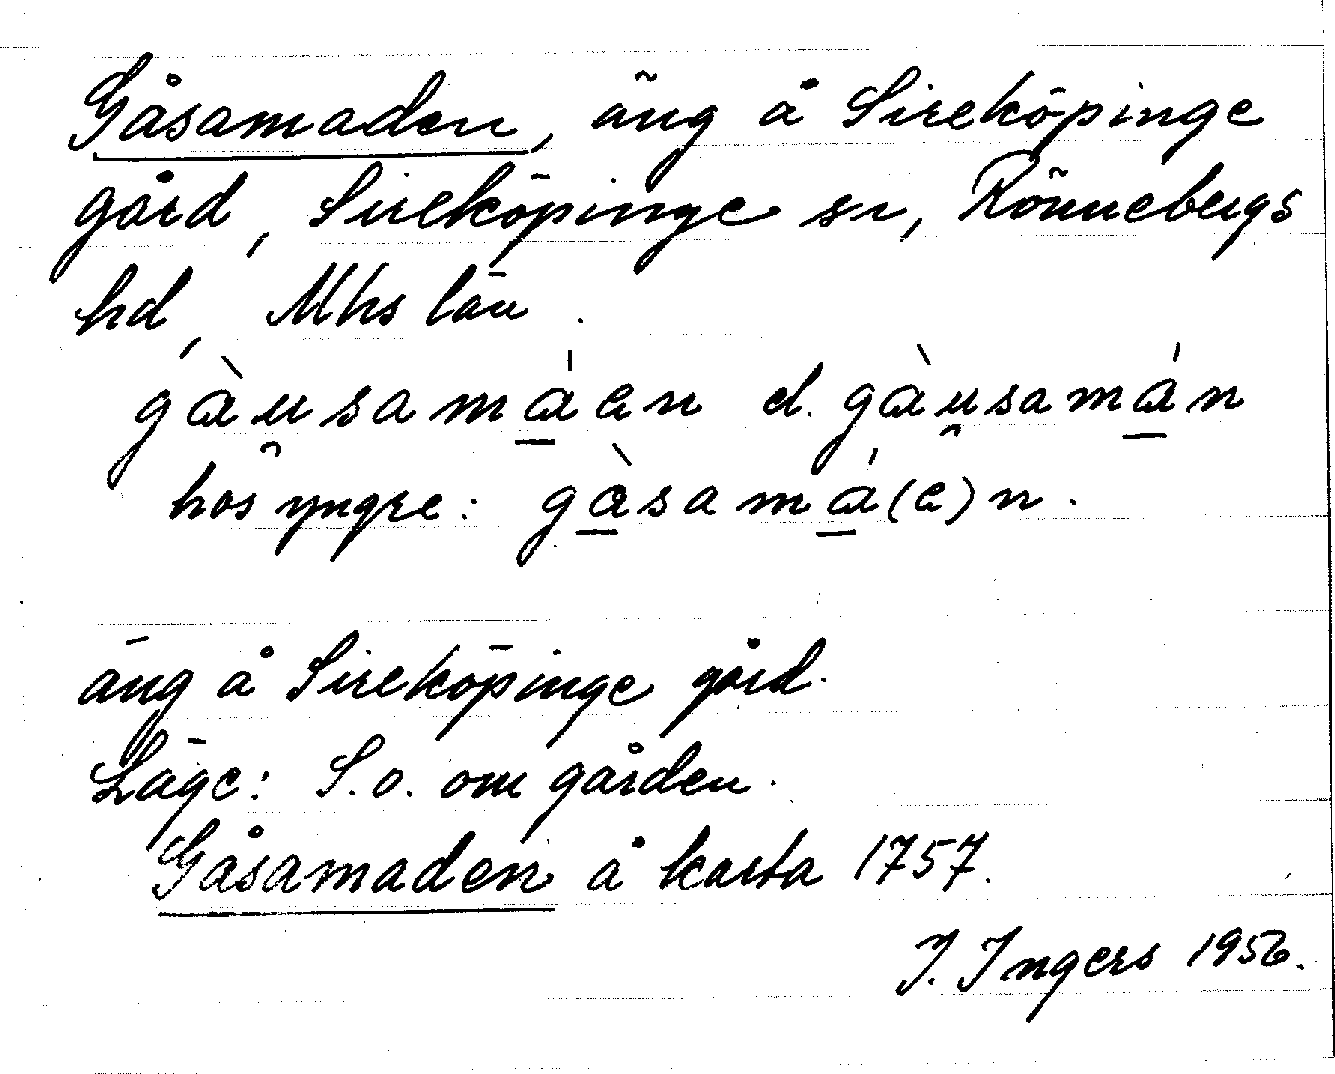 Gåsamaden, äng å Sireköpinge
gård, Sireköpinge sn, Rönnebergs
hd, Mhs län.
gàu̯samá̱en el. gàu̯samá̱n
hos yngre: gà̱samá̱(e)n.
äng å Sireköpinge gård.
Läge: S.o. om gården.
Gåsamaden å karta 1757.
I. Ingers 1956.